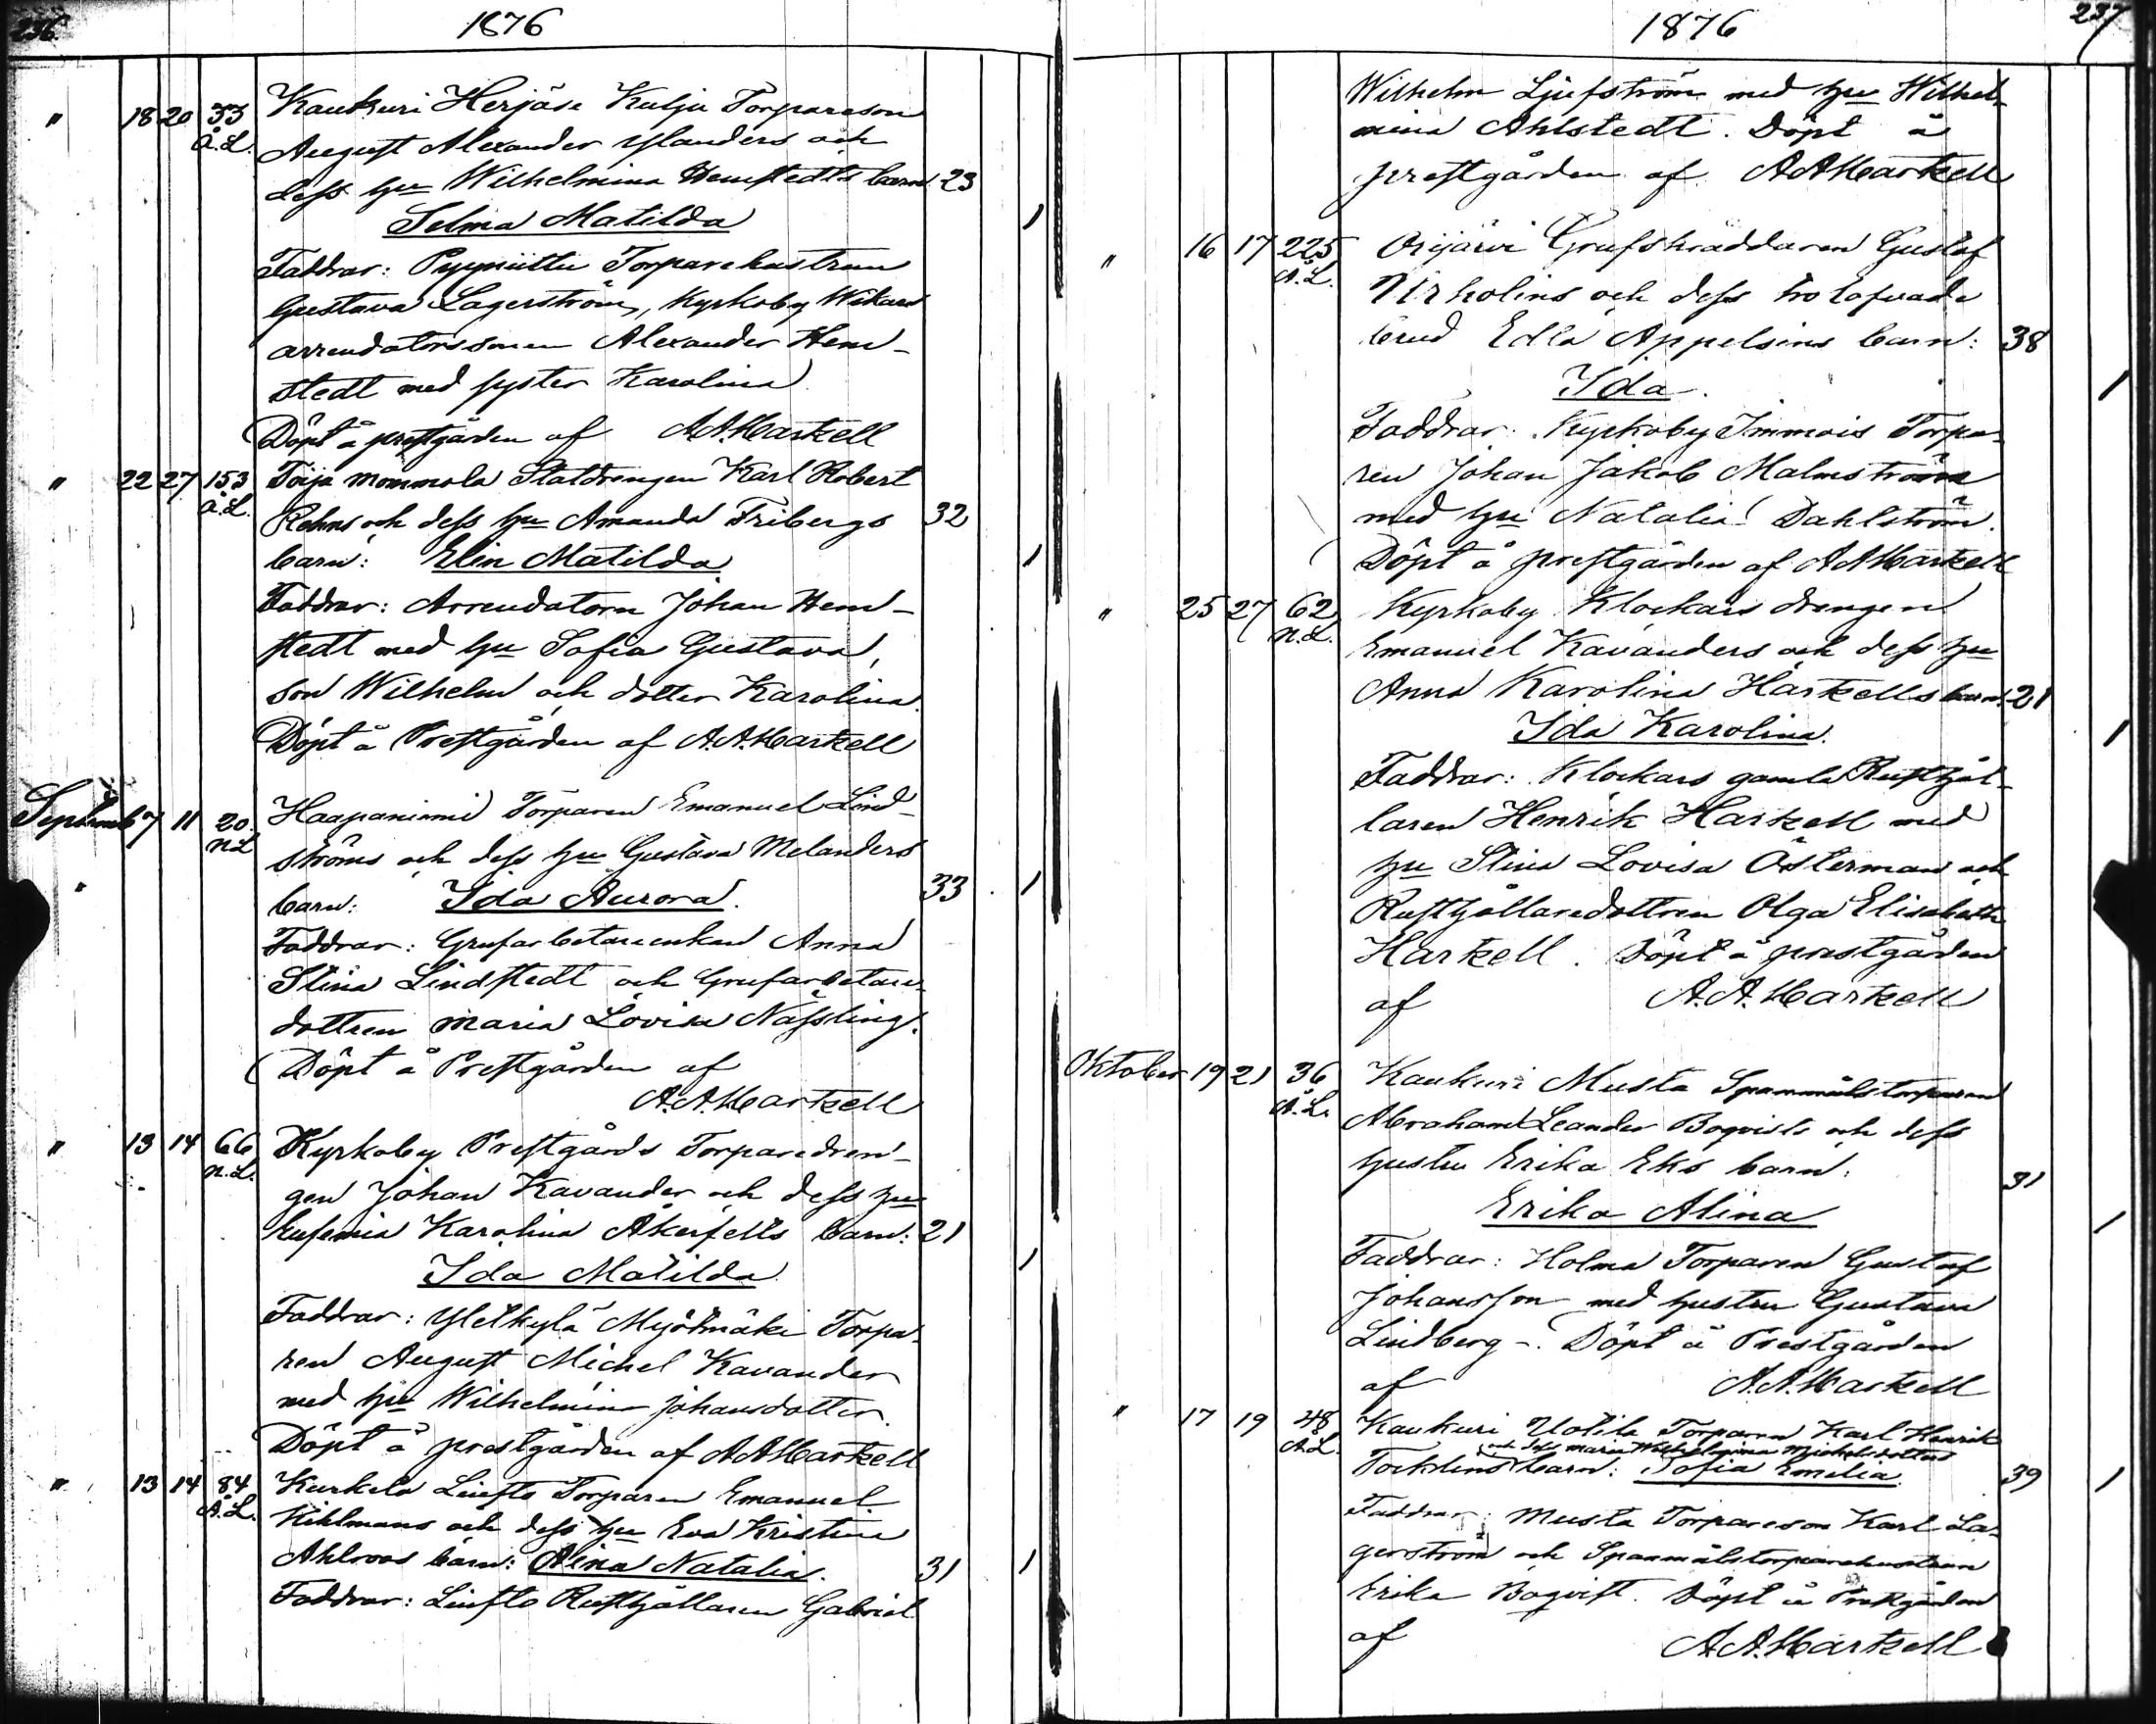 236.
1876
" 18 20 33 Kaukuri Herjäse Kulju Torpareson
Å.L. August Alexander Ylanders och
dess hu Wilhelmina Hemstedts barn: 23
Selma Matilda 1
Faddrar: Torparehustrun
Gustava Lagerström, Kyrkoby Wikars
arrendatorssonen Alexander Hem-
stedt med syster Karolina
Döpt å prestgården af A.A. Harkell
" 22 27 153 Toija Mommola Statdrengen Karl Robert
Å.L. och dess hu Amanda Fribergs 32
barn: Elin Matilda 1
Faddrar: Arrendatorn Johan Hem-
stedt med hu Sofia Gustava,
son Wilhelm och dotter Karolina.
Döpt å Prestgården af A.A. Harkell
Septemb 7 11 20 Haapaniemi Torparen Emanuel Lind-
N.L. ströms och dess hu Gustava Melanders
barn: Ida Aurora. 33 1
Faddrar: Grufarbetareenkan Anna
Stina Lindstedt och Grufarbetare-
dottren Maria Lovisa Nässling.
Döpt å Prestgården af
A.A. Harkell
" 13 14 66 Kyrkoby Prestgårds Torparedren-
N.L. gen Johan Kavander och dess hu
Eufemia Karolina Åkerfelts barn: 21
Ida Matilda 1
Faddrar: Ylikylä Myötmäki Torpa-
ren August Michel Kavander
med hu Wilhelmina Johansdotter.
Döpt å prestgården af A.A. Harkell
" 13 14 84 Kurkela Liufto Torparen Emanuel
Å.L. Kihlmans och dess hu Eva Kristina
Ahlroos barn: Aina Natalia. 31 1
Faddrar: Liufto Rusthållaren Gabriel
237
1876
Wilhelm Ljufström med hu Wilhel-
mina Ahlstedt. Döpt å
prestgården af A.A. Harkell
" 16 17 225 Orijärvi Grufskräddaren Gustaf
Å.L. och dess trolofvade
brud Edla Appelsins barn: 38
Ida. 1
Faddrar: Kyrkoby Immois Torpa-
ren Johan Jakob Malmström
med hu Natalia Dahlström.
Döpt å prestgården af A.A. Harkell
" 25 27 62 Kyrkoby Klockars drengen
N.L. Emanuel Kavanders och dess hu
Anna Karolina Harkells barn: 21
Ida Karolina. 1
Faddrar: Klockars gamla Rusthål-
laren Henrik Harkell med
hu Stina Lovisa Österman och
Rusthållaredottren Olga Elisabeth
Harkell. Döpt å prestgården
af A.A. Harkell
Oktober 19 21 36 Kaukuri Musta Spanmålstorparen
Å.L. Abraham Leander Boqvists och dess
hustru Erika Eks barn: 31
Erika Alina 1
Faddrar: Holma Torparen Gustaf
Johansson med hustru Gustava
Lindberg -. Döpt å Prestgården
af A.A. Harkell
" 17 19 48 Kaukuri Uotila Torparen Karl Henrik
och dess Maria Wilhelmina Michelsdotters
Å.L. barn: Sofia Emelia. 39 1
Faddrar: Musta Torpareson Karl La-
gerström och Spanmålstorparehustrun
Erika Boqvist. Döpt å Prestgården
af A.A. Harkell